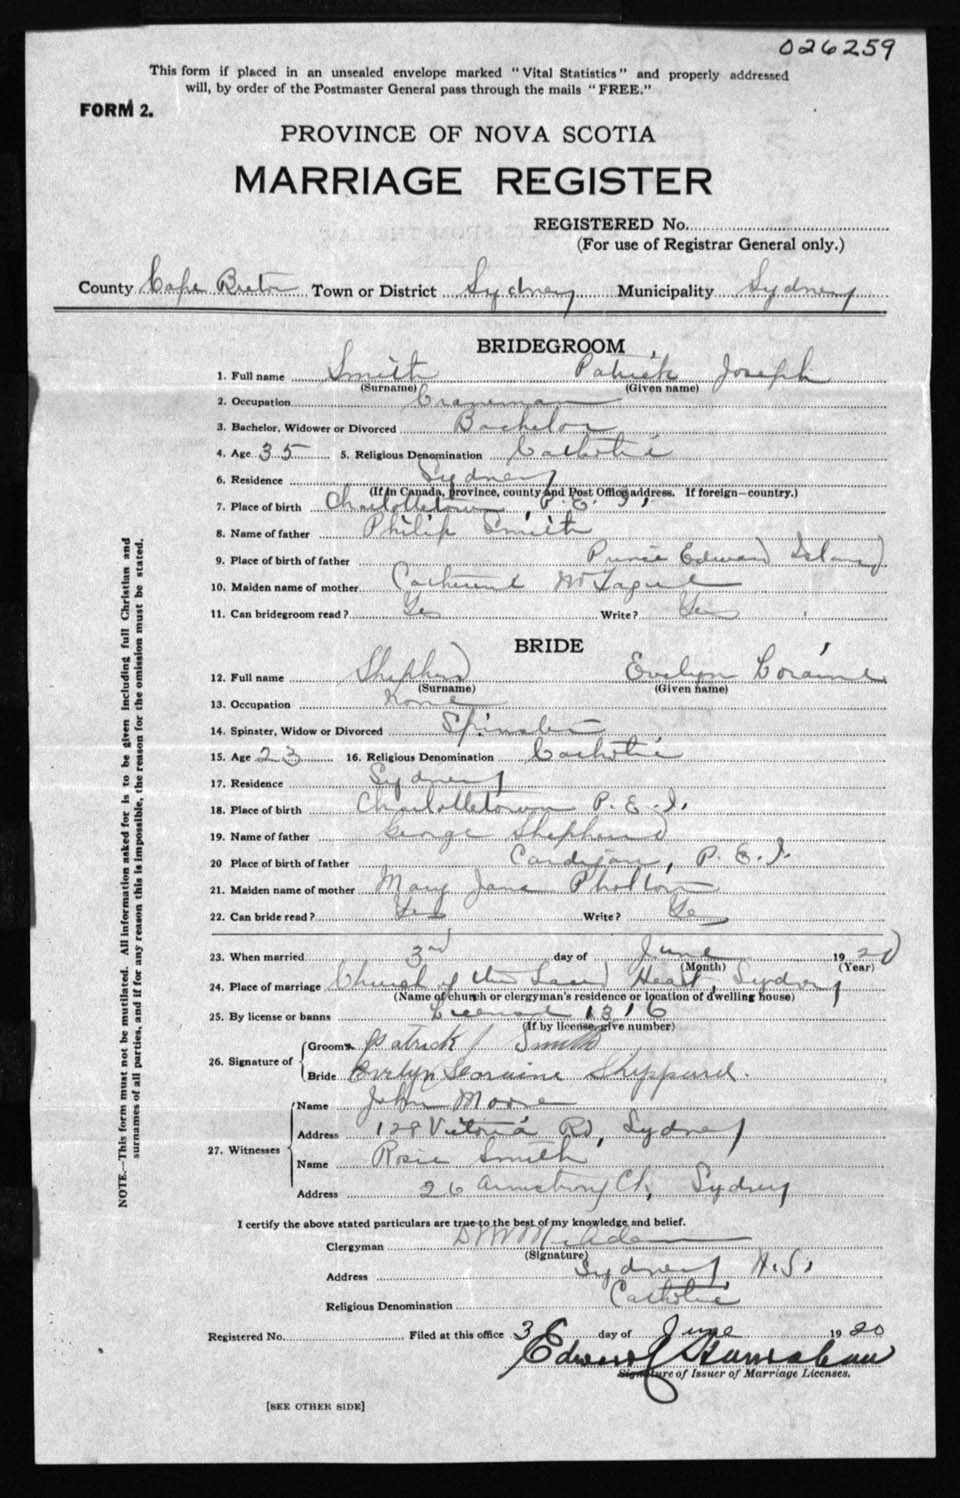 026259
This form if placed in an unsealed envelope marked "Vital Statistics" and properly addressed
will, by order of the Postmaster General pass through the mails "FREE."
FORM 2.
PROVINCE OF NOVA SCOTIA
MARRIAGE REGISTER
REGISTERED No.
(For use of Registrar General only.)
County Cape Breton Town or District Sydney Municipality Sydney
BRIDEGROOM
1. Full name Smith Patrick Joseph
(Surname) (Given name)
2. Occupation Craneman
3. Bachelor, Widower or Divorced Bachelor
4. Age 35 5. Religious Denomination Catholic
6. Residence Sydney
(If in Canada, province, county and Post Office address. If foreign—country.)
7. Place of birth Charlottetown, P.E.I.
8. Name of father Philip Smith
9. Place of birth of father Prince Edward Island
10. Maiden name of mother Catherine McTague
11. Can bridegroom read? Yes Write? Yes
BRIDE
12. Full name Shepherd Evelyn Loraine
(Surname) (Given name)
13. Occupation None
14. Spinster, Widow or Divorced Spinster
15. Age 23 16. Religious Denomination Catholic
17. Residence Sydney
18. Place of birth Charlottetown P.E.I.
19. Name of father George Shepherd
20 Place of birth of father Cardigan, P.E.I.
21. Maiden name of mother Mary Jane
22. Can bride read? Yes Write? Yes
23. When married 3rd day of June 1920
(Month) (Year)
24. Place of marriage Church of the Sacred Heart, Sydney
(Name of church or clergyman's residence or location of dwelling house)
25. By license or banns License 1316
(If by license, give number)
26. Signature of Groom Patrick J Smith
Bride Evelyn Loraine Sheppard.
27. Witnesses Name John Moore
Address 128 Victoria Rd, Sydney
Name Rosie Smith
Address 26 Armstrong Ct, Sydney
I certify the above stated particulars are true to the best of my knowledge and belief.
Clergyman
(Signature)
Address Sydney N.S.
Religious Denomination Catholic
Registered No. Filed at this office 3 day of June 1920
Edward
Signature of Issuer of Marriage Licenses.
[SEE OTHER SIDE]
NOTE.—This form must not be mutilated. All information asked for is to be given including full Christian and
surnames of all parties, and if for any reason this is impossible, the reason for the omission must be stated.